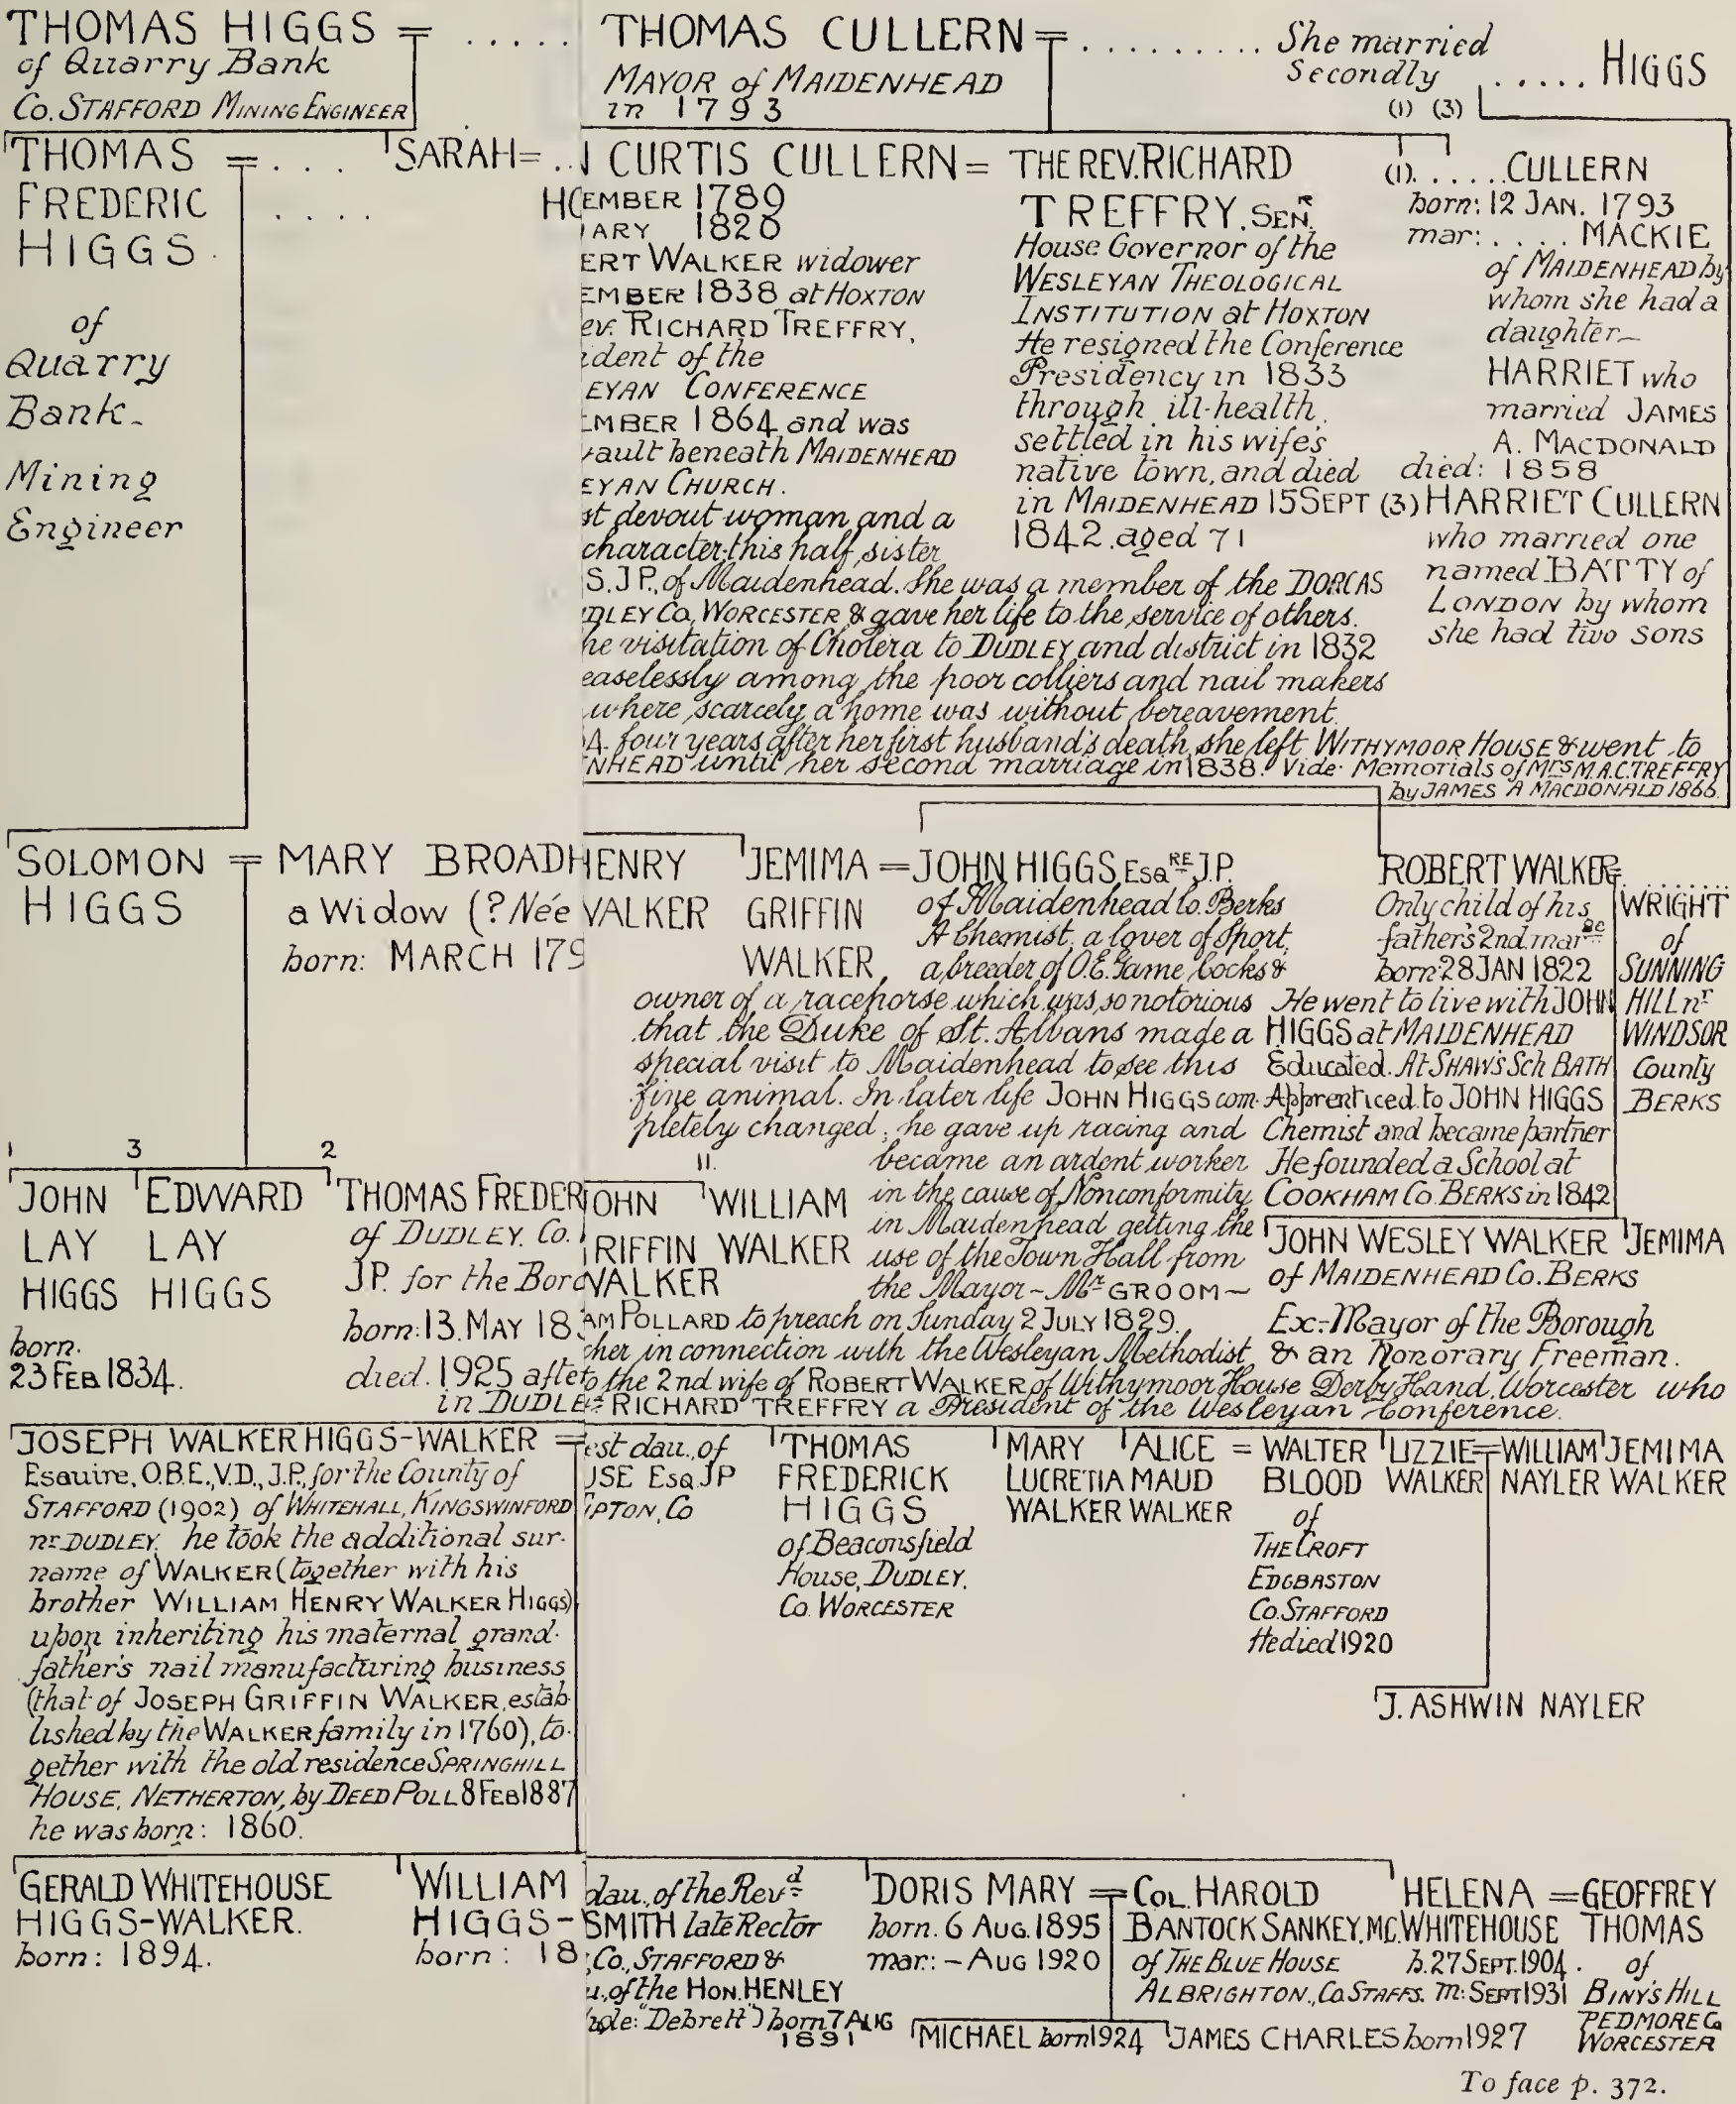 THOMAS HIGGS = .....
of Quarry Bank
Co. STAFFORD MINING ENGINEER
THOMAS = ...
FREDERIC ....
HIGGS.
of
Quarry
Bank-
Mining
Engineer
SARAH= ..
HO
THOMAS CULLERN = .......... She married
Secondly ..... HIGGS
MAYOR of MAIDENHEAD
in 1793
(1) (3)
N CURTIS CULLERN =
EMBER 1789
UARY 1820
ERT WALKER widower
EMBER 1838 at HOXTON
ev. RICHARD TREFFRY,
ident of the
EYAN CONFERENCE
EMBER 1864 and was
vault beneath MAIDENHEAD
EYAN CHURCH.
st devout woman and a
character: this half sister
S. J.P., of Maidenhead. She was a member of the DORCAS
DLEY Co. WORCESTER & gave her life to the service of others.
he visitation of Cholera to DUDLEY and district in 1832
easelessly among the poor colliers and nail makers
where scarcely a home was without bereavement.
4. four years after her first husband's death she left WITHYMOOR HOUSE & went to
NHEAD until her second marriage in 1838. Vide Memorials of MRS M.A.C. TREFFRY
by JAMES A MACDONALD 1866.
THE REV. RICHARD
TREFFRY. SENR.
House Governor of the
WESLEYAN THEOLOGICAL
INSTITUTION at HOXTON
He resigned the Conference
Presidency in 1833
through ill-health,
settled in his wife's
native town, and died
in MAIDENHEAD 15 SEPT
1842. aged 71
(1)...... CULLERN
born: 12 JAN. 1793
mar: .... MACKIE
of MAIDENHEAD by
whom she had a
daughter—
HARRIET who
married JAMES
A. MACDONALD
died: 1858
(3) HARRIET CULLERN
who married one
named BATTY of
LONDON by whom
she had two sons
SOLOMON = MARY BROADH
HIGGS
a Widow (? Née
born: MARCH 179
HENRY
WALKER
JEMIMA =
GRIFFIN
WALKER,
JOHN HIGGS, ESQRE J.P.
of Maidenhead Co. Berks
A Chemist, a lover of Sport,
a breeder of O.E. Game Cocks &
owner of a racehorse which was so notorious
that the Duke of St. Albans made a
special visit to Maidenhead to see this
fine animal. In later life JOHN HIGGS com-
pletely changed; he gave up racing and
became an ardent worker
in the cause of Nonconformity
in Maidenhead getting the
use of the Town Hall from
the Mayor - Mr GROOM -
AM POLLARD to preach on Sunday 2 JULY 1829.
cher in connection with the Wesleyan Methodist
to the 2nd wife of ROBERT WALKER of Withymoor House Derby Hand, Worcester who
RICHARD TREFFRY a President of the Wesleyan Conference.
ROBERT WALKER =
Only child of his
father's 2nd. marge
born: 28 JAN 1822
He went to live with JOHN
HIGGS at MAIDENHEAD
Educated. At SHAW'S Sch BATH
Apprenticed to JOHN HIGGS
Chemist and became partner
He founded a School at
COOKHAM Co. BERKS in 1842
........
WRIGHT
of
SUNNING
HILL nr
WINDSOR
County
BERKS
1 3 2
JOHN
LAY
HIGGS
born.
23 FEB 1834.
EDWARD
LAY
HIGGS
THOMAS FREDER
of DUDLEY. Co.
J.P. for the Boro
born: 13. MAY 183
died. 1925 afte
in DUDLE
11.
JOHN
GRIFFIN
WALKER
WILLIAM
WALKER
JOHN WESLEY WALKER
of MAIDENHEAD Co. BERKS
Ex-Mayor of the Borough
& an Honorary Freeman.
JEMIMA
JOSEPH WALKER HIGGS-WALKER =
Esquire, O.B.E., V.D., J.P., for the County of
STAFFORD (1902) of WHITEHALL, KINGSWINFORD
nr. DUDLEY. he took the additional sur-
name of WALKER (together with his
brother WILLIAM HENRY WALKER HIGGS)
upon inheriting his maternal grand-
father's nail manufacturing business
(that of JOSEPH GRIFFIN WALKER, estab-
lished by the WALKER family in 1760), to-
gether with the old residence SPRINGHILL
HOUSE, NETHERTON, by DEED POLL 8 FEB 1887
he was born: 1860.
est dau., of
USE Esq JP
IPTON, Co
THOMAS
FREDERICK
HIGGS
of Beaconsfield
House, DUDLEY,
Co. WORCESTER
MARY
LUCRETIA
WALKER
ALICE =
MAUD
WALKER
WALTER
BLOOD
of
THE CROFT
EDGBASTON
Co. STAFFORD
He died 1920
LIZZIE =
WALKER
WILLIAM
NAYLER
JEMIMA
WALKER
J. ASHWIN NAYLER
GERALD WHITEHOUSE
HIGGS-WALKER.
born: 1894.
WILLIAM
HIGGS-
born: 18
dau., of the Revd
SMITH late Rector
Co., STAFFORD &
u., of the HON. HENLEY
ide: "Debrett") born 7 AUG
1891
DORIS MARY =
born. 6 AUG. 1895
mar: - AUG 1920
COL. HAROLD
BANTOCK SANKEY, M.C.
of THE BLUE HOUSE
ALBRIGHTON., Co. STAFFS.
HELENA =
WHITEHOUSE
b. 27 SEPT. 1904.
m: SEPT 1931
GEOFFREY
THOMAS
of
BINY'S HILL
PEDMORE Co
WORCESTER
MICHAEL born 1924
JAMES CHARLES born 1927
To face p. 372.